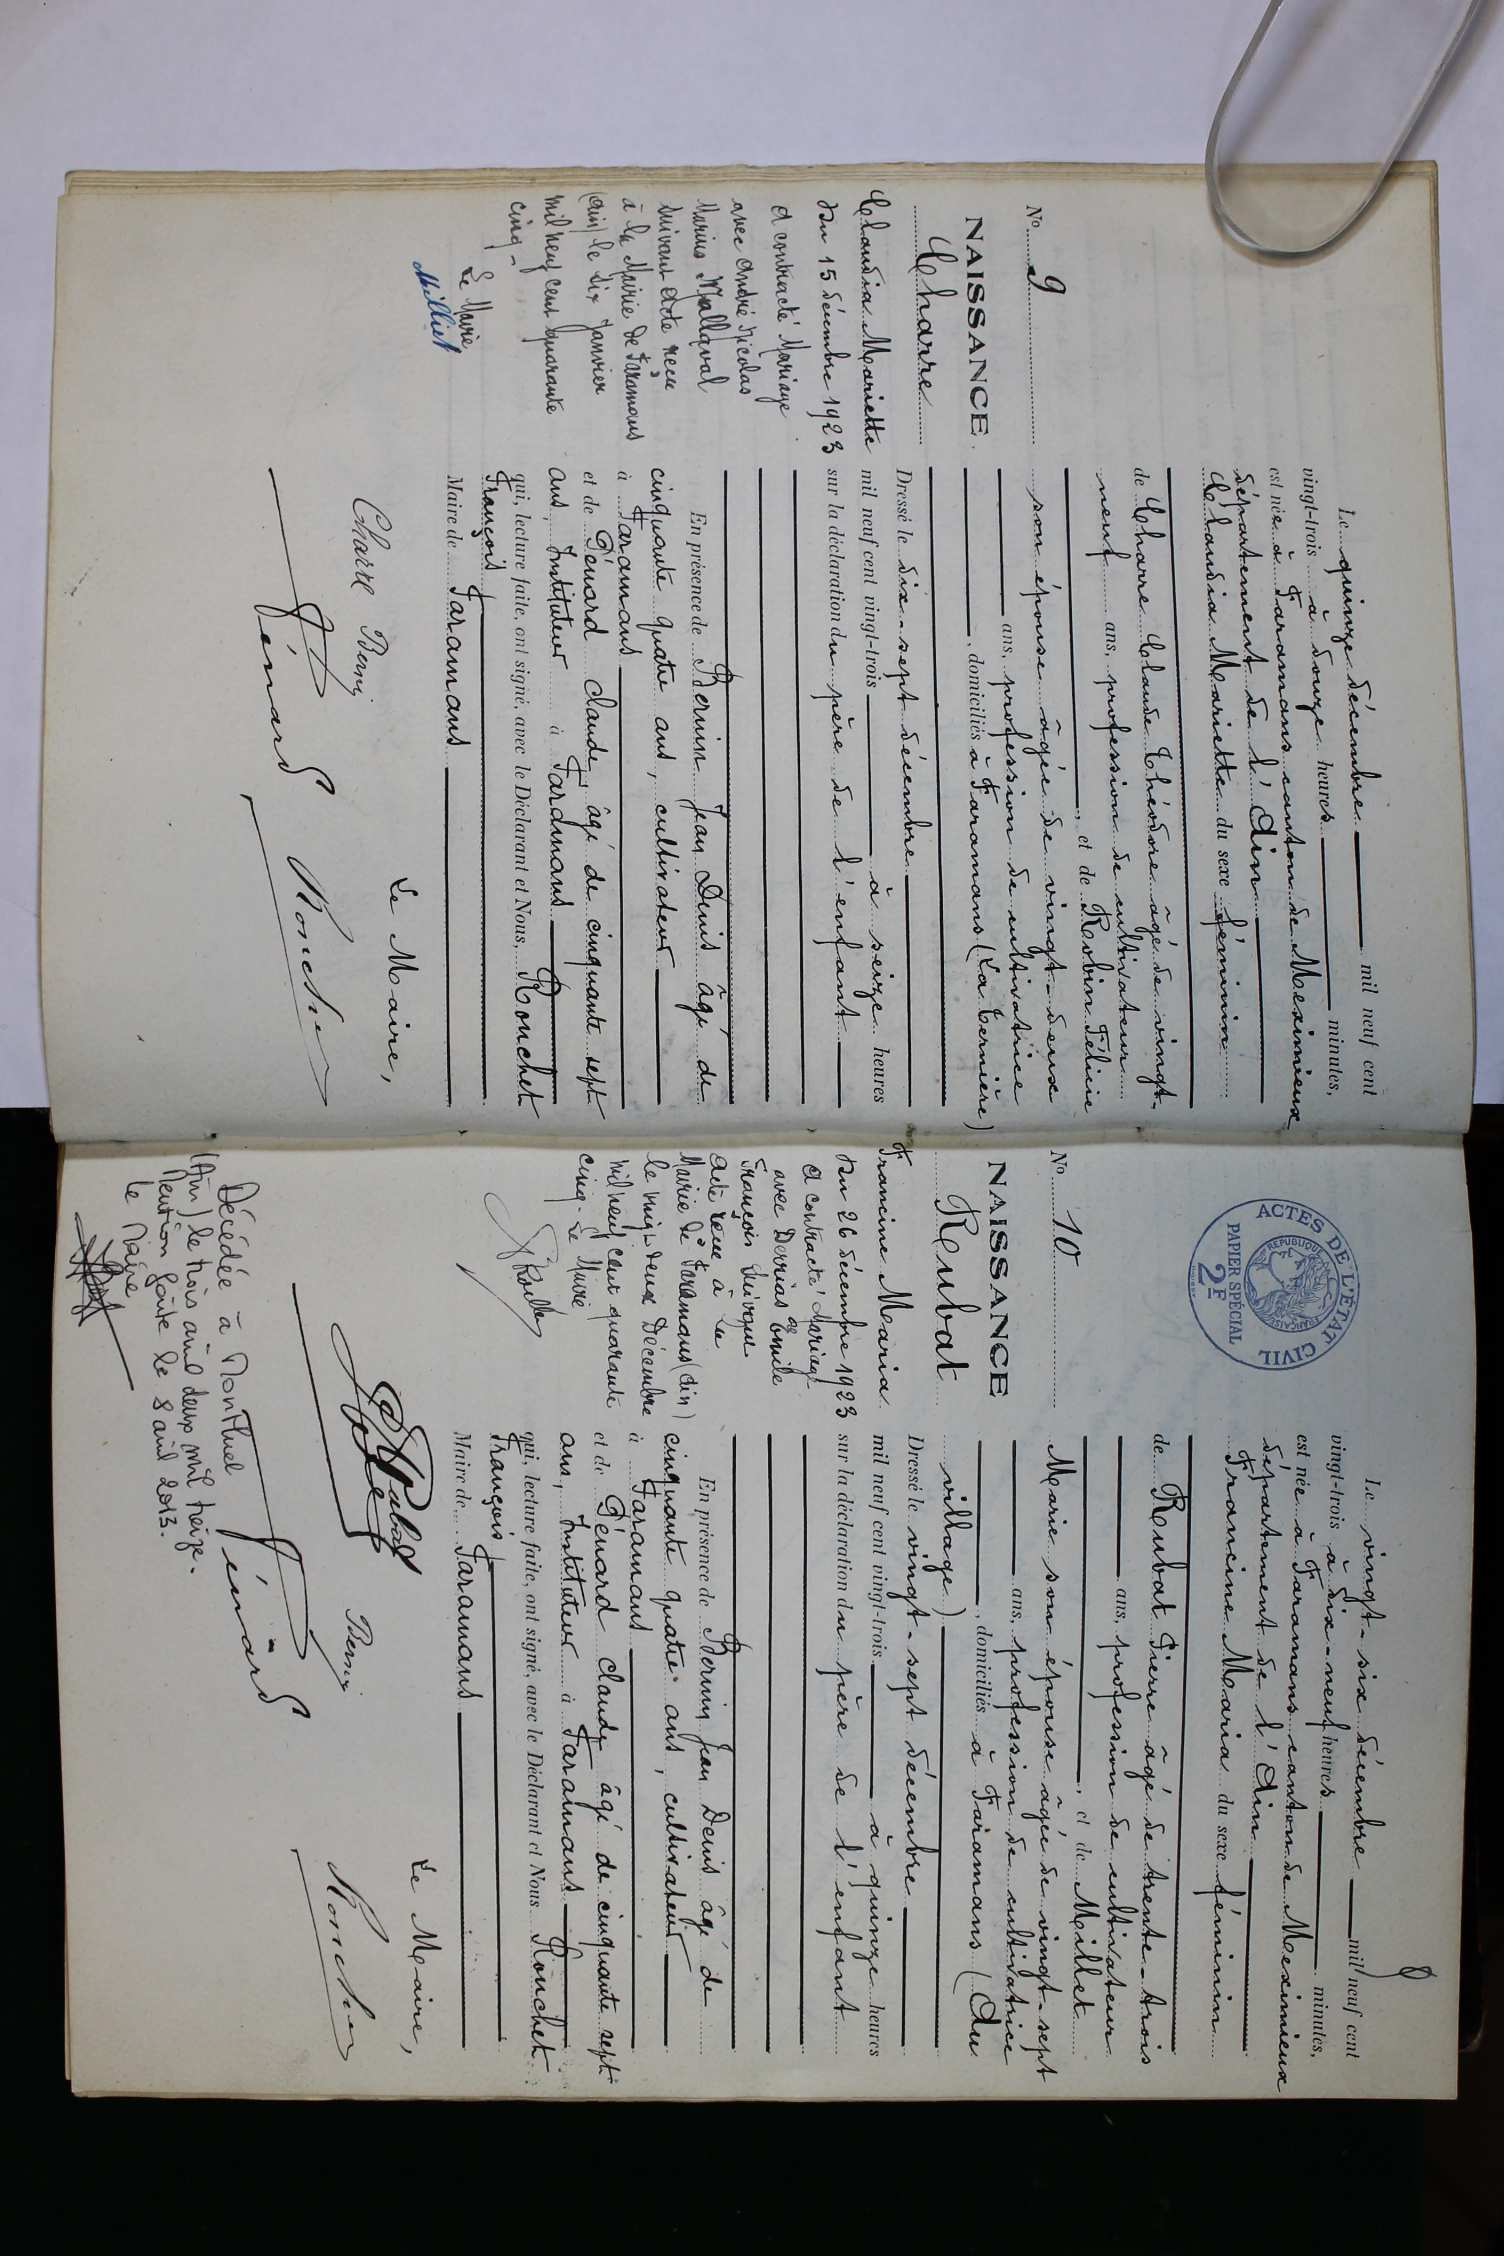 N° 9
NAISSANCE
Charre
Claudia Mariette
du 15 décembre 1923
a contracté Mariage
avec André Nicolas
Marius Mallaval
suivant acte reçu
à la Mairie de Faramans
(Ain) le dix Janvier
mil neuf cent quarante
cinq -
Le Maire
Milliet
Le quinze décembre mil neuf cent
vingt-trois à douze heures minutes,
est née à Faramans canton de Meximieux
département de l'Ain
Claudia Mariette du sexe féminin
de Charre Claude Théodore âgé de vingt-
neuf ans, profession de cultivateur
, et de Robin Félicie
son épouse âgée de vingt-deux
ans, profession de cultivatrice
, domiciliés à Faramans (La Ternière)
Dressé le dix-sept décembre
mil neuf cent vingt-trois à seize heures
sur la déclaration du père de l'enfant
En présence de Bernin Jean Denis âgé de
cinquante quatre ans, cultivateur
à Faramans
et de Pénard Claude, âgé de cinquante sept
ans, Instituteur à Faramans
qui, lecture faite, ont signé, avec le Déclarant et Nous, Ronchet
François
Maire de Faramans
Le Maire,
Charre Bernin
Pénard Ronchet
N° 10
NAISSANCE
Rubat
Francine Maria
du 26 décembre 1923
a contracté Mariage
avec Emile
François
acte reçu à la
Mairie de Faramans (Ain)
le vingt deux Décembre
mil neuf cent quarante
cinq - Le Maire
ACTES DE L'ÉTAT CIVIL
RÉPUBLIQUE FRANÇAISE
2F
PAPIER SPÉCIAL
Le vingt-six décembre mil neuf cent
vingt-trois à dix-neuf heures minutes,
est née à Faramans canton de Meximieux
département de l'Ain
Francine Maria du sexe féminin
de Rubat Pierre âgé de trente-trois
ans, profession de cultivateur
, et de Millet
Marie son épouse âgée de vingt-sept
ans, profession de cultivatrice
, domiciliés à Faramans (Au
village)
Dressé le vingt-sept décembre
mil neuf cent vingt-trois à quinze heures
sur la déclaration du père de l'enfant
En présence de Bernin Jean Denis âgé de
cinquante quatre ans, cultivateur
à Faramans
et de Pénard Claude âgé de cinquante sept
ans, Instituteur à Faramans
qui, lecture faite, ont signé, avec le Déclarant et Nous Ronchet
François
Maire de Faramans
Le Maire,
Rubat Bernin
Pénard Ronchet
Décédée à Montluel
(Ain) le trois avril deux mil treize.
Mention faite le 8 avril 2013.
le Maire